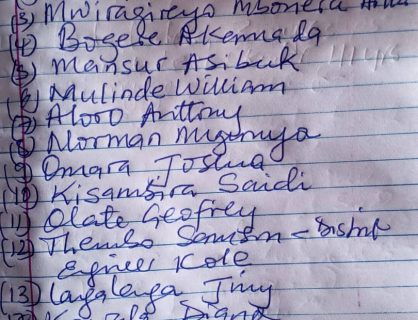 (3) Mwiragireyo Mbonera
(4) Bogere Akennada
(5) Mansur Asibuk
(6) Mulinde William
(7) Aloro Anttony
(8) Norman Mgumya
(9) Omara Joshua
(10) Kisambira Saidi
(11) Olate Geofrey
(12) Thembo Samson -
Kole
(13) Layalenga Jimy
Diana